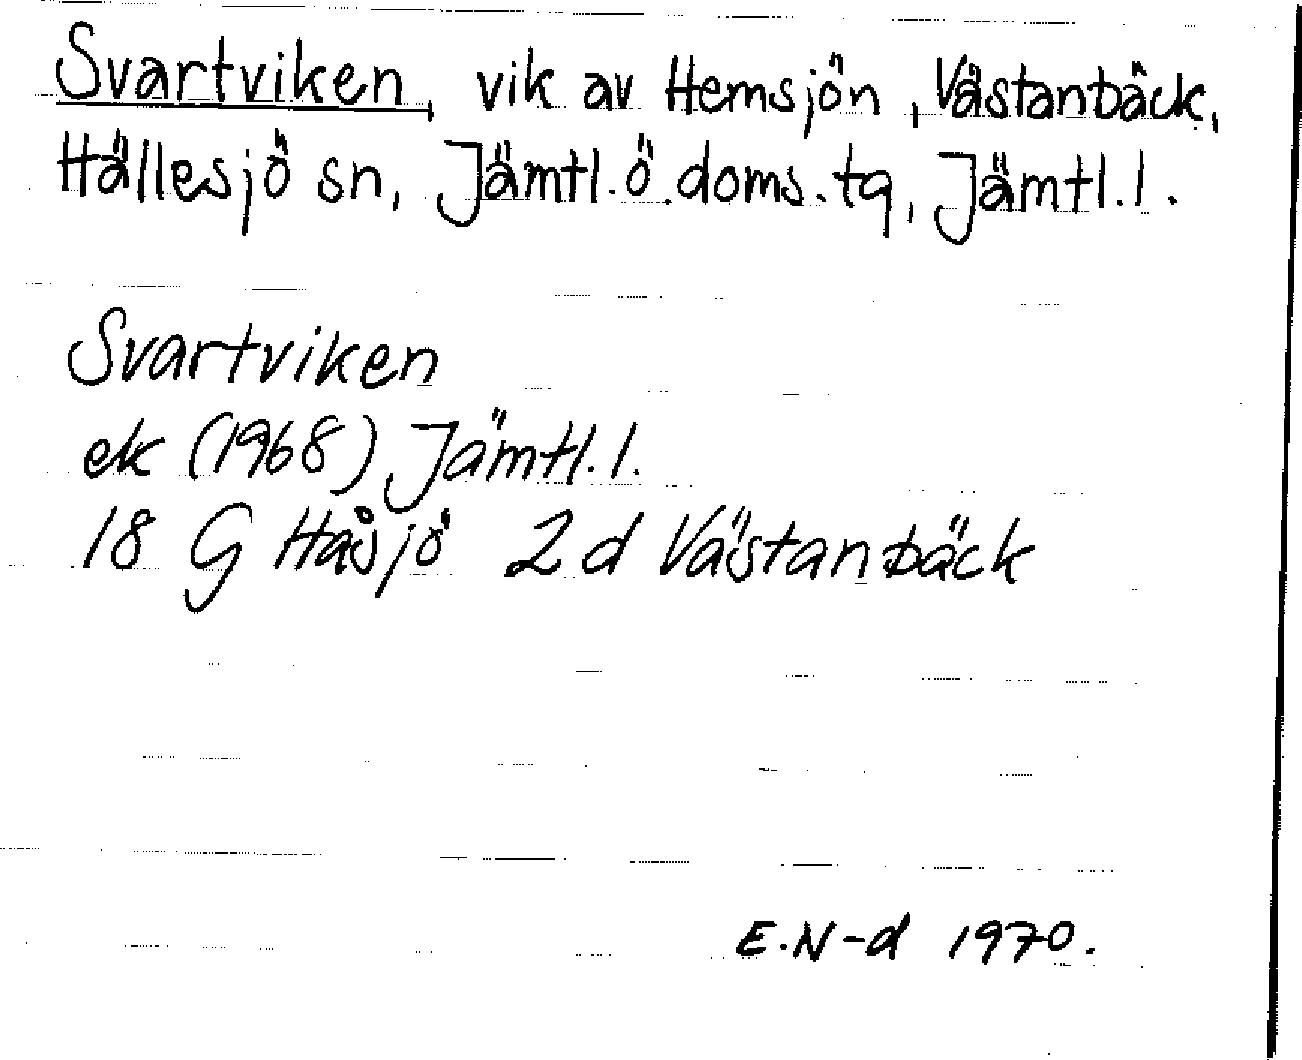 Svartviken, vik av Hemsjön, Västanbäck,
Hällesjö sn, Jämtl. ö. doms. tg, Jämtl. l.
Svartviken
ek (1968) Jämtl. l.
18 G Håsjö 2 d Västanbäck
E. N-d 1970.